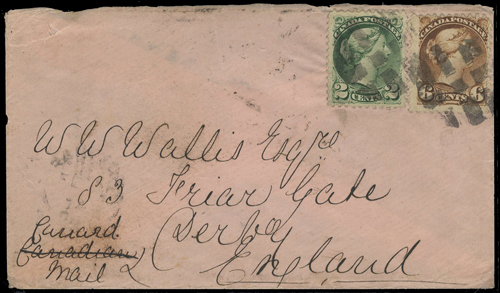 CANADA POSTAGE CANADA POSTAGE
2 CENTS 2 6 CENTS 6
W W Wallis Esqre
83 Friar Gate
Derby
England
Cunard
Canadian
Mail